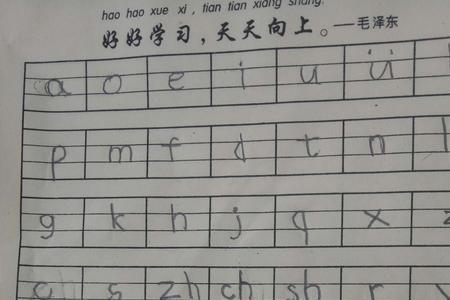 hao hao xue xi , tian tian xiang shang.
好好学习，天天向上。——毛泽东
a o e i u ü
p m f d t n l
g k h j q x
s zh ch sh r